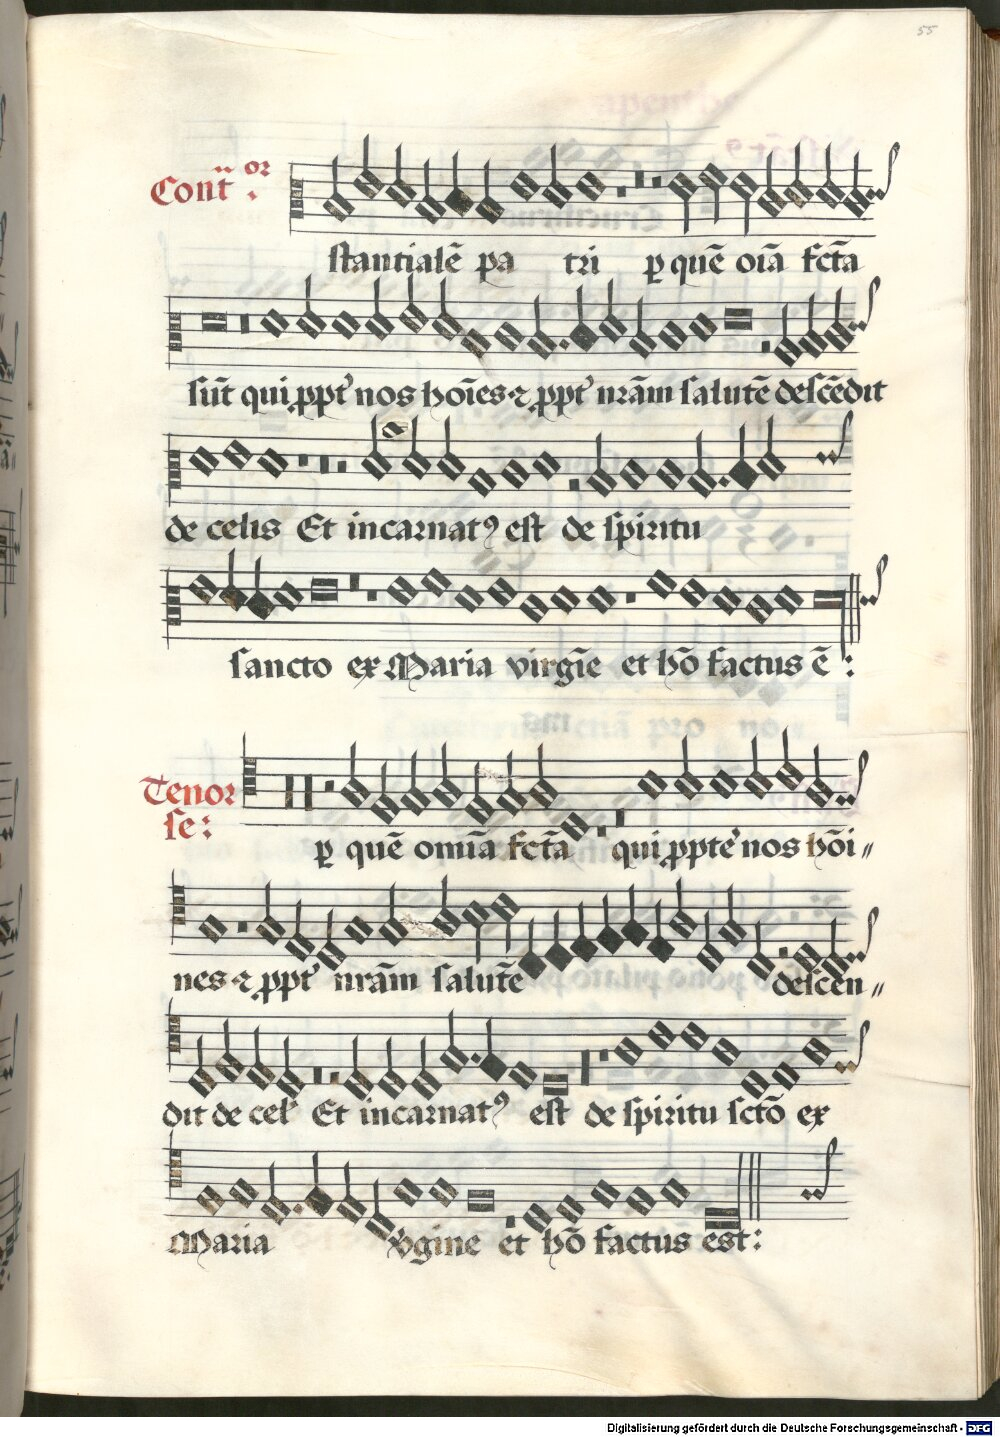 55
Conṫ or :
stantialē pa tri ꝑ quē oīa fctā
sūt qui ꝓpt' nos hoīes ⁊ ꝓpt' nrām salutē descēdit
de celis Et incarnatꝰ est de spiritu
sancto ex Maria virgīe et hō factus ē :
Tenor
se :
ꝑ quē omīa fctā qui ꝓpte' nos hōi〃
nes ⁊ ꝓpt' nrām salutē descen〃
dit de cel' Et incarnatꝰ est de spiritu sctō ex
Maria v̓gine et hō factus est :
Digitalisierung gefördert durch die Deutsche Forschungsgemeinschaft - DFG